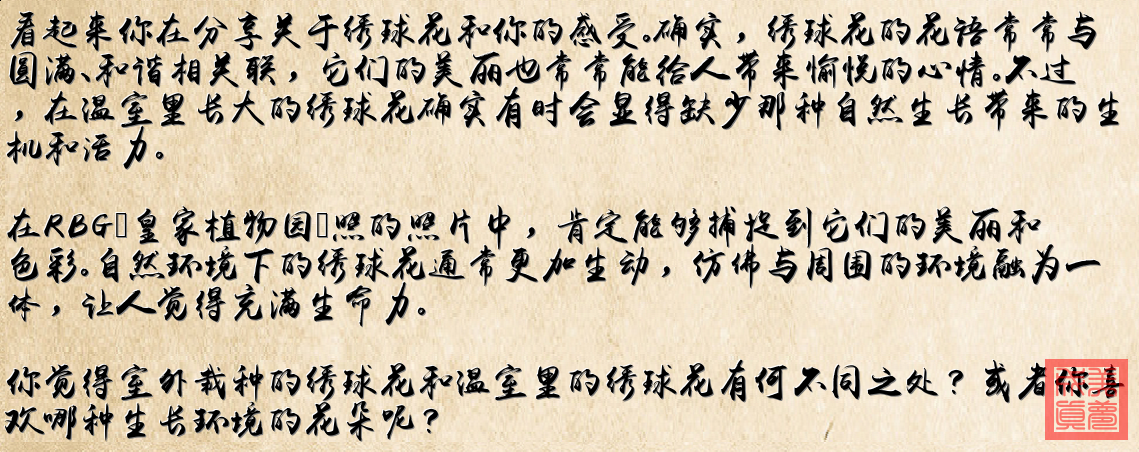 看起来你在分享关于绣球花和你的感受。确实，绣球花的花语常常与
圆满、和谐相关联，它们的美丽也常常能给人带来愉悦的心情。不过
，在温室里长大的绣球花确实有时会显得缺少那种自然生长带来的生
机和活力。
在RBG▯皇家植物园▯照的照片中，肯定能够捕捉到它们的美丽和
色彩。自然环境下的绣球花通常更加生动，仿佛与周围的环境融为一
体，让人觉得充满生命力。
你觉得室外栽种的绣球花和温室里的绣球花有何不同之处？或者你喜
欢哪种生长环境的花朵呢？